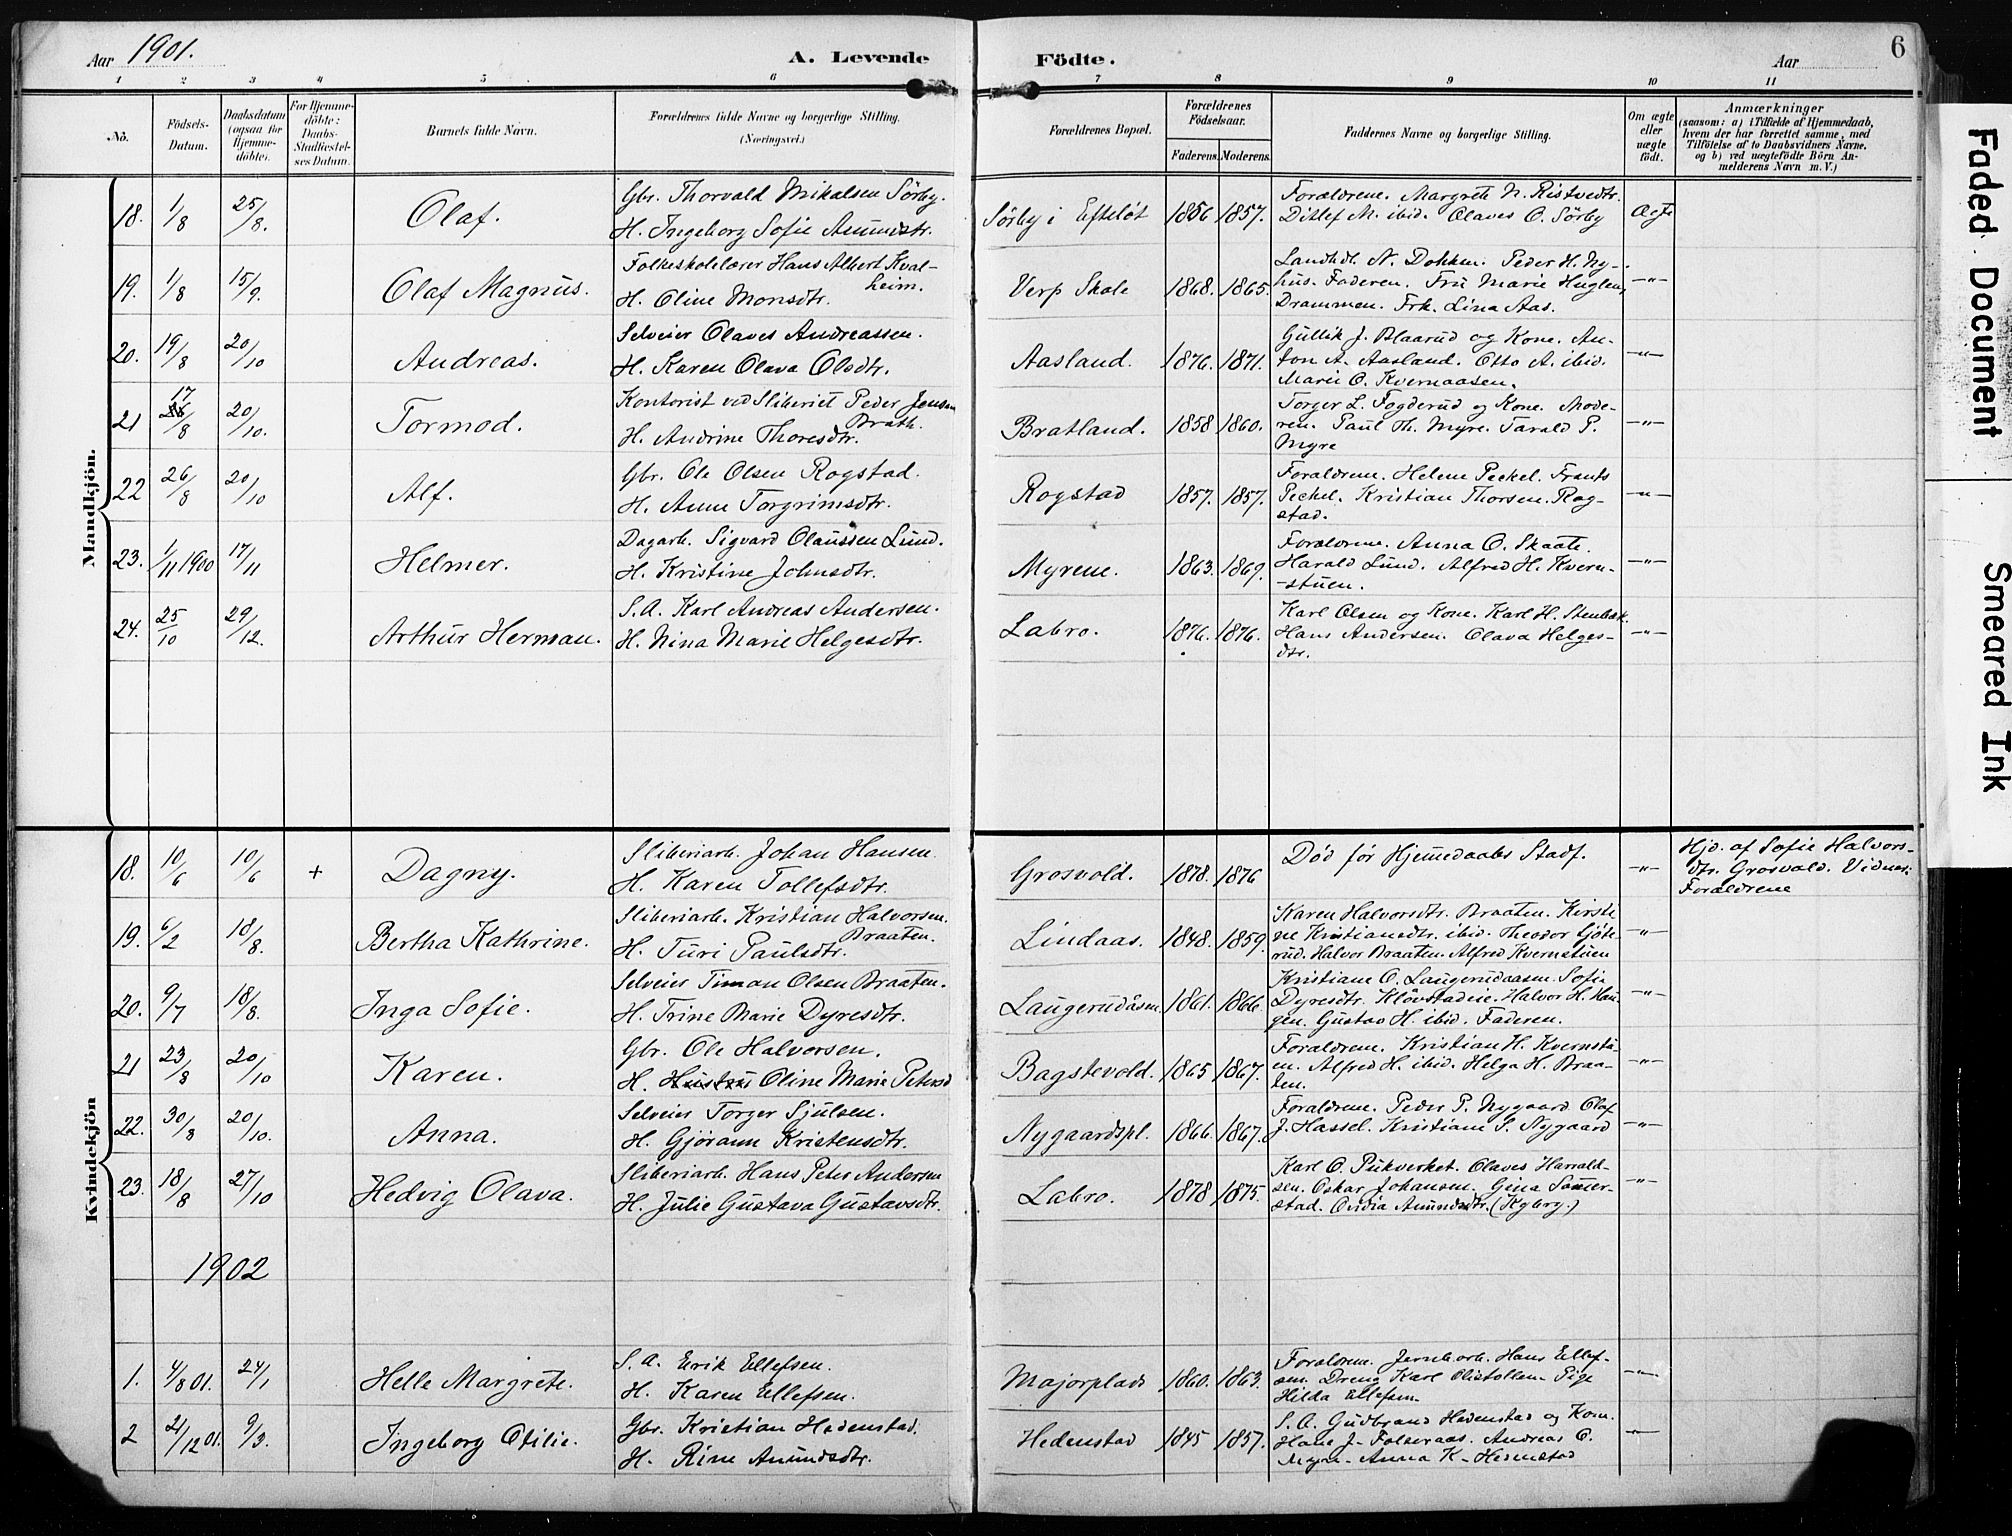 Aar 1901.
A. Levende Födte.
Aar
6
1 2 3 4 5 6 7 8 9 10 11
No.
Födsels-Datum.
Daabsdatum (ogsaa for Hjemmedöbte).
For Hjemmedöbte: Daabs-Stadfæstelses Datum.
Barnets fulde Navn.
Forældrenes fulde Navne og borgerlige Stilling. (Næringsvei.)
Forældrenes Bopæl.
Forældrenes Födselsaar.
Faderens. Moderens.
Faddernes Navne og borgerlige Stilling.
Om ægte eller uægte födt.
Anmærkninger (saasom: a) i Tilfælde af Hjemmedaab, hvem der har forrettet samme, med Tilföielse af to Daabsvidners Navne, og b) ved uægtefödte Börn Anmelderens Navn m. V.)
Mandkjön.
18. 1/8 25/8. Olaf. Gbr. Thorvald Mikalsen Sörby. H. Ingeborg Sofie Amundsdtr. Sörby i Efteløt 1856 1857. Forældrene. Margrete N. Ristvedtr. Ditlef M. ibid. Olaves O. Sörby Ægte
19. 1/8 15/9. Olaf Magnus. Folkeskolelærer Hans Albert Kvalheim. H. Oline Monsdtr. Verp Skole 1868. 1865. Landhdl. N. Dokken. Peder H. Nyhus. Faderen. Fru Marie Huglen, Drammen. Frk. Lina Aas. -"-
20. 19/8 20/10 Andreas. Selveier Olaves Andreassen. H. Karen Olava Olsdtr. Aasland. 1876. 1871. Gullik J. Blaarud og Kone. Anton A. Aasland. Otto A. ibid. Marie O. Kvernaasen. -"-
21 17/8 20/10. Tormod. Kontorist ved Sliberiet Peder Jensen Brath. H. Andrine Thoresdtr. Bratland. 1858 1860. Torger L. Fogderud og Kone. Moderen. Paul Th. Myre. Tarald P. Myre -"-
22 26/8 20/10 Alf. Gbr. Ole Olsen Rogstad. H. Anne Torgrimsdtr. Rogstad 1857. 1857. Forældrene. Helene Peckel. Frants Peckel. Kristian Thorsen. Rogstad. -"-
23. 1/11 1900 17/11 Helmer. Dagarb. Sigvard Olaussen Lund. H. Kristine Johnsdtr. Myrene. 1863. 1869. Forældrene. Anna O. Skaate. Harald Lund. Alfred H. Kvernstuen. -"-
24. 25/10 29/12. Arthur Herman. S.A. Karl Andreas Andersen. H. Nina Marie Helgesdtr. Labro. 1876. 1876. Karl Olsen og Kone. Karl H. Stenbæk. Hans Andersen. Olava Helgesdtr. -"-
Kvindekjön
18. 10/6 10/6 + Dagny. Sliberiarb. Johan Hansen. H. Karen Tollefsdtr. Grosvold. 1878. 1876 Død før Hjemmedaabs Stadf. -"- Hjd. af Sofie Halvorsdtr. Grosvold. Vidner: Forældrene
19. 6/2 18/8. Bertha Kathrine. Sliberiarb. Kristian Halvorsen. Braaten. H. Turi Paulsdtr. Lindaas. 1848. 1859. Karen Halvorsdtr. Braaten. Kirstene Kristiansdtr. ibid. Theodor Sjøterud. Halvor Braaten. Alfred Kvernstuen -"-
20. 9/7 18/8. Inga Sofie. Selveier Timan Olsen Braaten. H. Trine Marie Dyresdtr. Laugerudåsen 1861. 1866. Kristiane O. Laugerudaasen. Sofie Dyresdtr. Klövstadeie. Halvor H. Haugen. Gustav H. ibid. Faderen. -"-
21 23/8 20/10 Karen. Gbr. Ole Halvorsen. H. Hustru Oline Marie Petersd Bagstevold. 1865 1867. Forældrene. Kristian H. Kvernstuen. Alfred H. ibid. Helga H. Braaten. -"-
22. 30/8 20/10. Anna. Selveier Torger Sjulsen. H. Gjørann Kristensdtr. Nygaardspl. 1866. 1867. Forældrene. Peder P. Nygaard Olaf J. Hassel. Kristiane S. Nygaard -"-
23. 18/8 27/10 Hedvig Olava. Sliberiarb. Hans Peter Andersen H. Julie Gustava Gustavsdtr. Labro. 1878 1875. Karl O. Pukverket. Olaves Harraldsen. Oskar Johansen. Gina Somerstad. Ovidia Amundsdtr. (Nyberg.) -"-
1902
1. 4/8 01. 24/1 Helle Margrete. S.A. Erik Ellefsen. H. Karen Ellefsen. Majorplads 1860. 1863. Forældrene. Jernbarb. Hans Ellefsen. Dreng Karl Pige Hilda Ellefsen -"-
2 21/12 01. 9/3. Ingeborg Otilie. Gbr. Kristian Hedenstad. H. Rine Amundsdtr. Hedenstad 1845 1857. S.A. Gudbrand Hedenstad og Kone. Hane J. Andreas O. Myre. Anna K. Hedenstad -"-
Faded Document
Smeared Ink